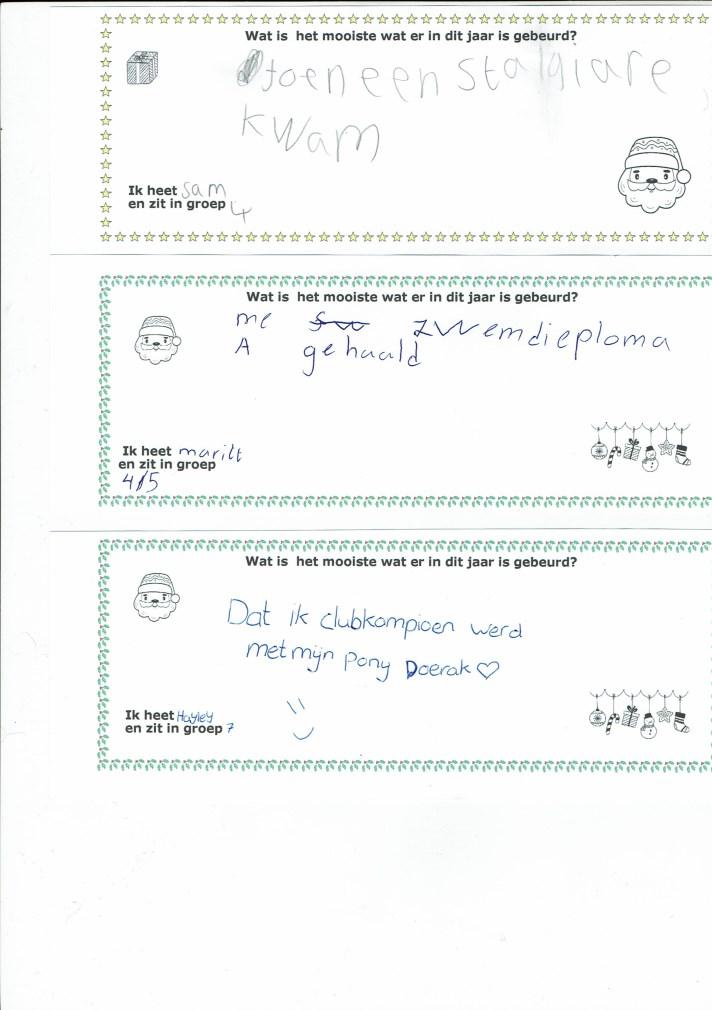 Wat is het mooiste wat er in dit jaar is gebeurd?
toen een stagiare
kwam
Ik heet sam
en zit in groep 4
Wat is het mooiste wat er in dit jaar is gebeurd?
me zwemdieploma
A gehaald
Ik heet marilt
en zit in groep
4/5
Wat is het mooiste wat er in dit jaar is gebeurd?
Dat ik clubkampioen werd
met mijn pony Doerak ♡
Ik heet Hayley
en zit in groep 7